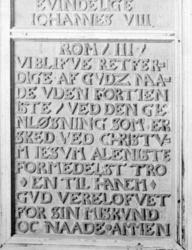 EVINDELIGE
IOHANNES VIII
ROM / III /
VI BLIFVE RETFER-
DIGE AF GVDZ NAA-
DE VDEN FORTIEN
ISTE / VED DEN GE
NLØSNING SOM ER
SKED VED CHRISTV-
M IESVM ALENISTE
FORMEDELST TRO
EN TIL HANEM
GVD VERE LOFVET
FOR SIN MISKVND
OC NAADE AMEN